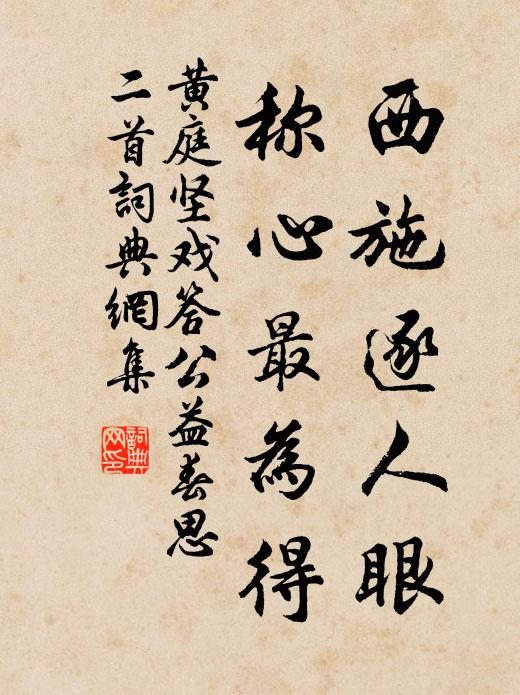 西施逐人眼
称心最為得
黄庭坚戏答公益春思
二首詞典網集
詞典
网印